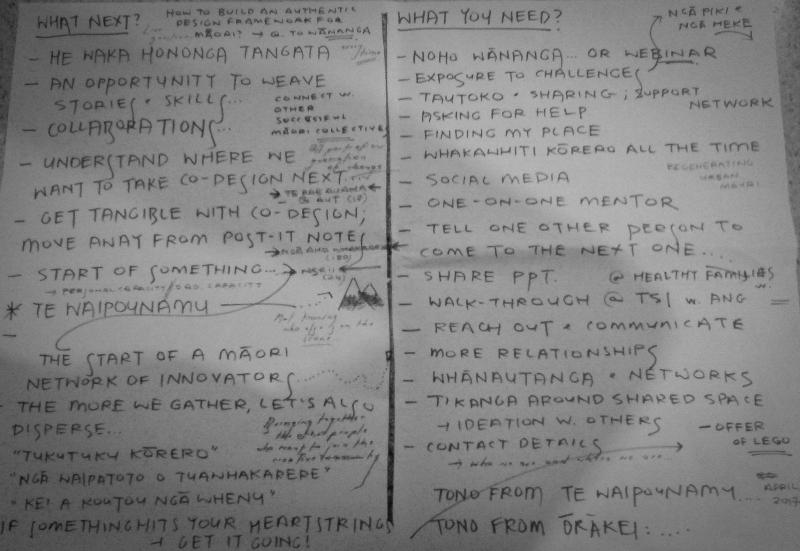 WHAT NEXT?
HOW TO BUILD AN AUTHENTIC
DESIGN FRAMEWORK FOR
MĀORI? → Q. TO WĀNANGA
- HE WAKA HONONGA TANGATA
- AN OPPORTUNITY TO WEAVE
STORIES + SKILLS...
CONNECT W.
OTHER
SUCCESSFUL
MĀORI COLLECTIVES
- COLLABORATIONS...
- UNDERSTAND WHERE WE
WANT TO TAKE CO-DESIGN NEXT...
@ AUT (18)
- GET TANGIBLE WITH CO-DESIGN;
MOVE AWAY FROM POST-IT NOTES
- START OF SOMETHING...
→ PERSONAL CAPACITY/ORG. CAPACITY
* TE WAIPOUNAMU
-
THE START OF A MĀORI
NETWORK OF INNOVATORS
- THE MORE WE GATHER, LET'S ALSO
DISPERSE...
Bringing together
"TUKUTUKU KŌRERO"
"NGĀ WAIPUTOTO O TUAWHAKARERE"
"KEI A KOUTOU NGĀ WHENU"
IF SOMETHING HITS YOUR HEARTSTRINGS
→ GET IT GOING!
WHAT YOU NEED?
NGĀ PIKI &
NGĀ HEKE
- NOHO WĀNANGA... OR WEBINAR
- EXPOSURE TO CHALLENGES
- TAUTOKO + SHARING; SUPPORT
NETWORK
- ASKING FOR HELP
- FINDING MY PLACE
- WHAKAWHITI KŌRERO ALL THE TIME
REGENERATING
URBAN
MĀORI
- SOCIAL MEDIA
- ONE-ON-ONE MENTOR
- TELL ONE OTHER PERSON TO
COME TO THE NEXT ONE....
- SHARE PPT. @ HEALTHY FAMILIES
- WALK-THROUGH @ TSI W. ANG
- REACH OUT + COMMUNICATE
- MORE RELATIONSHIPS
- WHĀNAUTANGA + NETWORKS
- TIKANGA AROUND SHARED SPACE
→ IDEATION W. OTHERS
- OFFER
OF LEGO
- CONTACT DETAILS
→ who we are and where we are...
TONO FROM TE WAIPOUNAMU...
APRIL
2017
TONO FROM ŌRĀKEI:....